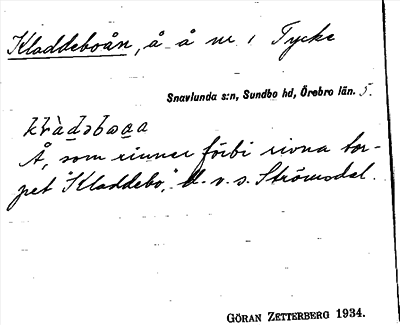 Kladdeboån, å å nr 1 Tycke
Snavlunda s:n, Sundbo hd, Örebro län. 5.
Å, som rinner förbi rivna tor-
pet "Kladdebo," v. s. Strömsdal.
GÖRAN ZETTERBERG 1934.